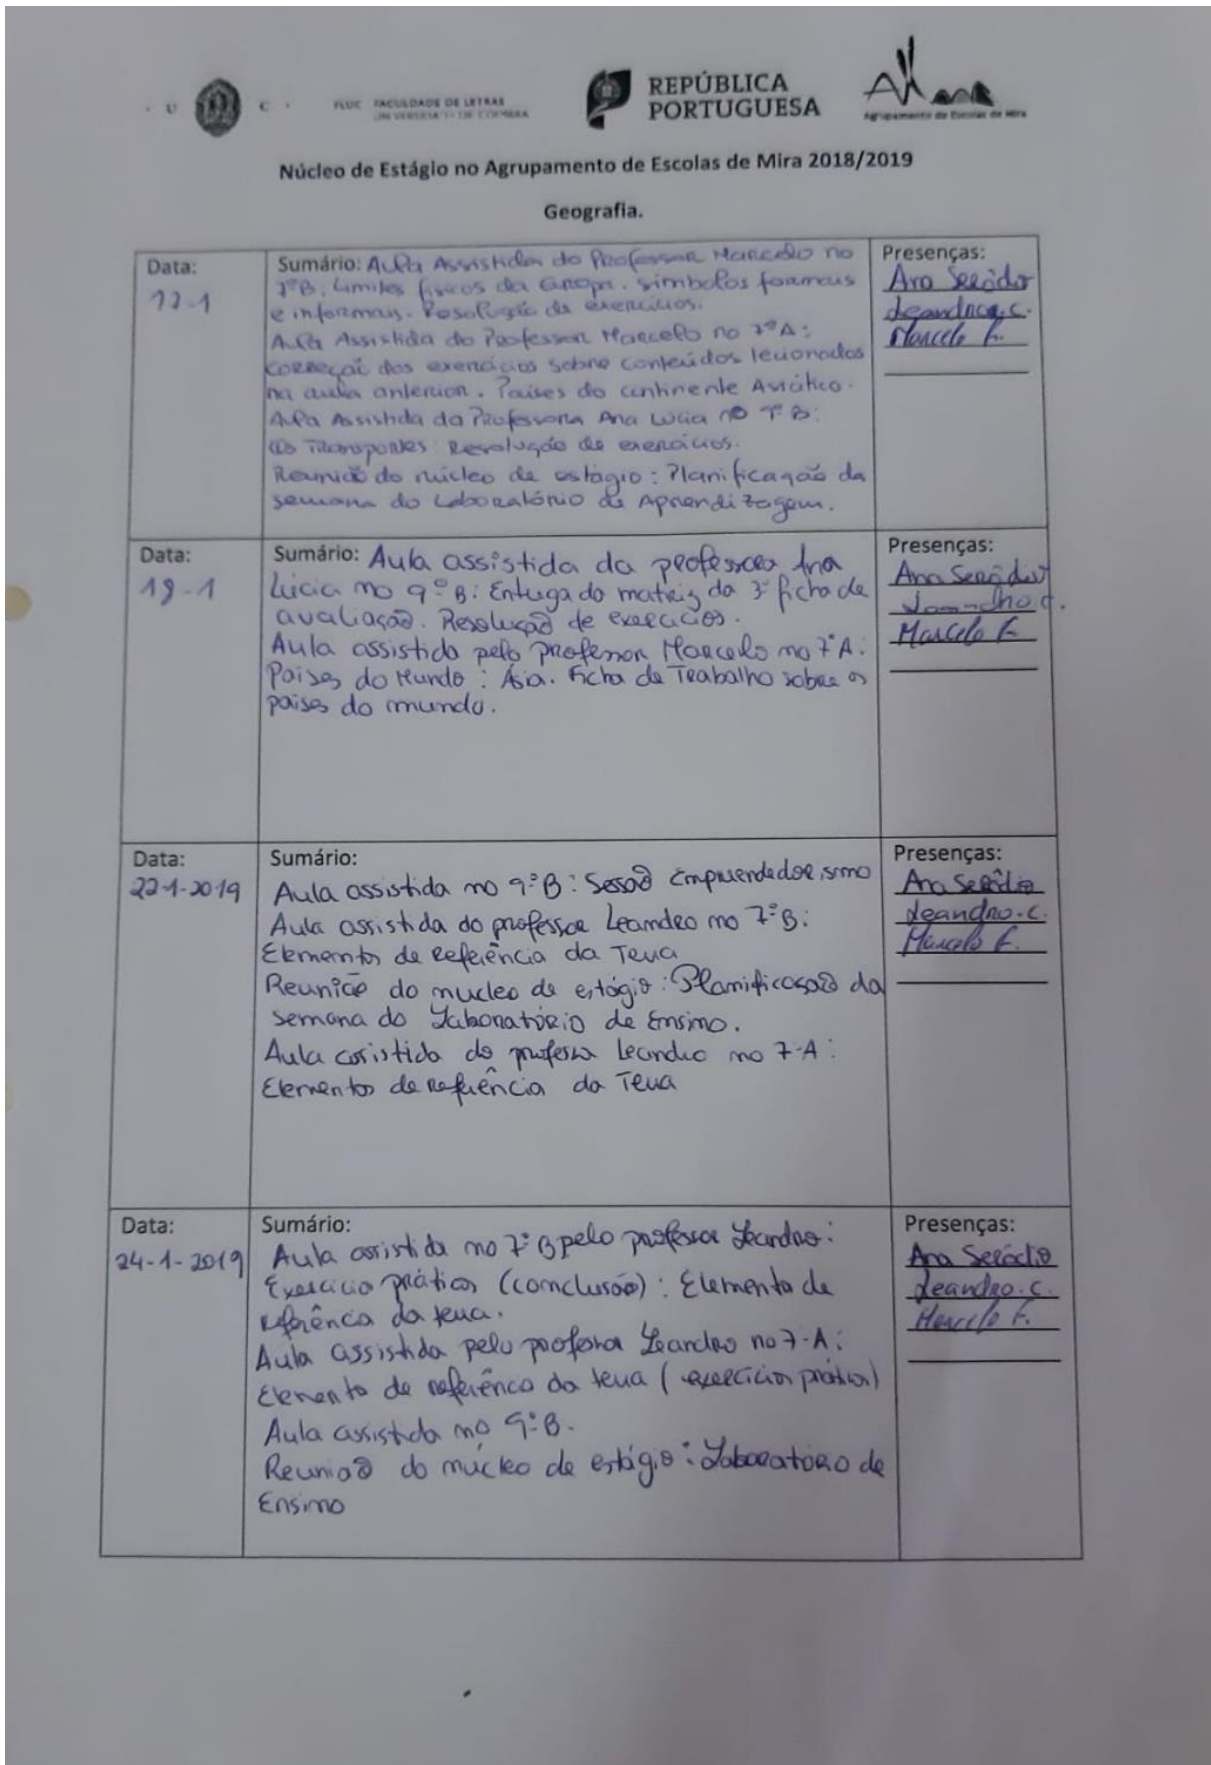 U C
FLUC FACULDADE DE LETRAS
UNIVERSIDADE DE COIMBRA
REPÚBLICA
PORTUGUESA
Agrupamento de Escolas de Mira
Núcleo de Estágio no Agrupamento de Escolas de Mira 2018/2019
Geografia.
Data:
17-1
Sumário: Aula Assistida do Professor Marcelo no
7ºB: Limites físicos da Europa. símbolos formais
e informais. Resolução de exercícios.
Aula Assistida do Professor Marcelo no 7ºA:
correção dos exercícios sobre conteúdos lecionados
na aula anterior. Países do continente Asiático.
Aula Assistida da Professora Ana Lúcia no 9ºB:
Os Transportes: Resolução de exercícios.
Reunião do núcleo de estágio: Planificação da
semana do Laboratório de Aprendizagem.
Presenças:
Ana Serôdio
Leandro.C.
Marcelo F.
Data:
18-1
Sumário: Aula assistida da professora Ana
Lúcia no 9ºB: Entrega da matriz da 3ª ficha de
avaliação. Resolução de exercícios.
Aula assistida pelo professor Marcelo no 7ºA:
Países do Mundo: Ásia. Ficha de Trabalho sobre os
países do mundo.
Presenças:
Ana Serôdio
Leandro C.
Marcelo F.
Data:
22-1-2019
Sumário:
Aula assistida no 9ºB: Sessão Empreendedorismo
Aula assistida do professor Leandro no 7ºB:
Elementos de Referência da Terra
Reunião do nucleo de estágio: Planificação da
semana do Laboratório de Ensino.
Aula assistida do professor Leandro no 7-A:
Elementos de Referência da Terra
Presenças:
Ana Serôdio
Leandro.C.
Marcelo F.
Data:
24-1-2019
Sumário:
Aula assistida no 7ºB pelo professor Leandro:
Exercício prático (conclusão): Elemento de
referência da terra.
Aula assistida pelo professor Leandro no 7-A:
Elemento de referência da terra (exercícios práticos)
Aula assistida no 9ºB.
Reunião do núcleo de estágio: Laboratório de
Ensino
Presenças:
Ana Serôdio
Leandro.C.
Marcelo F.